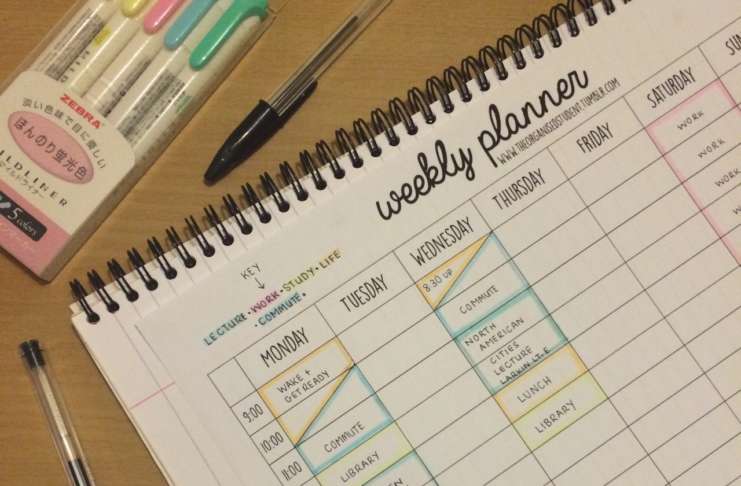 ZEBRA
淡い色味で目に楽しい
ほんのり蛍光色
ILDLINER
5 colors
weekly planner
WWW.THEORGANISEDSTUDENT.TUMBLR.COM
KEY
LECTURE · WORK · STUDY · LIFE
· COMMUTE ·
MONDAY
TUESDAY
WEDNESDAY
THURSDAY
FRIDAY
SATURDAY
SUN
9:00
10:00
11:00
WAKE +
GET READY
COMMUTE
LIBRARY
8.30 UP
COMMUTE
NORTH
AMERICAN
CITIES
LECTURE
LARKIN LT. E
LUNCH
LIBRARY
WORK
WORK
WORK